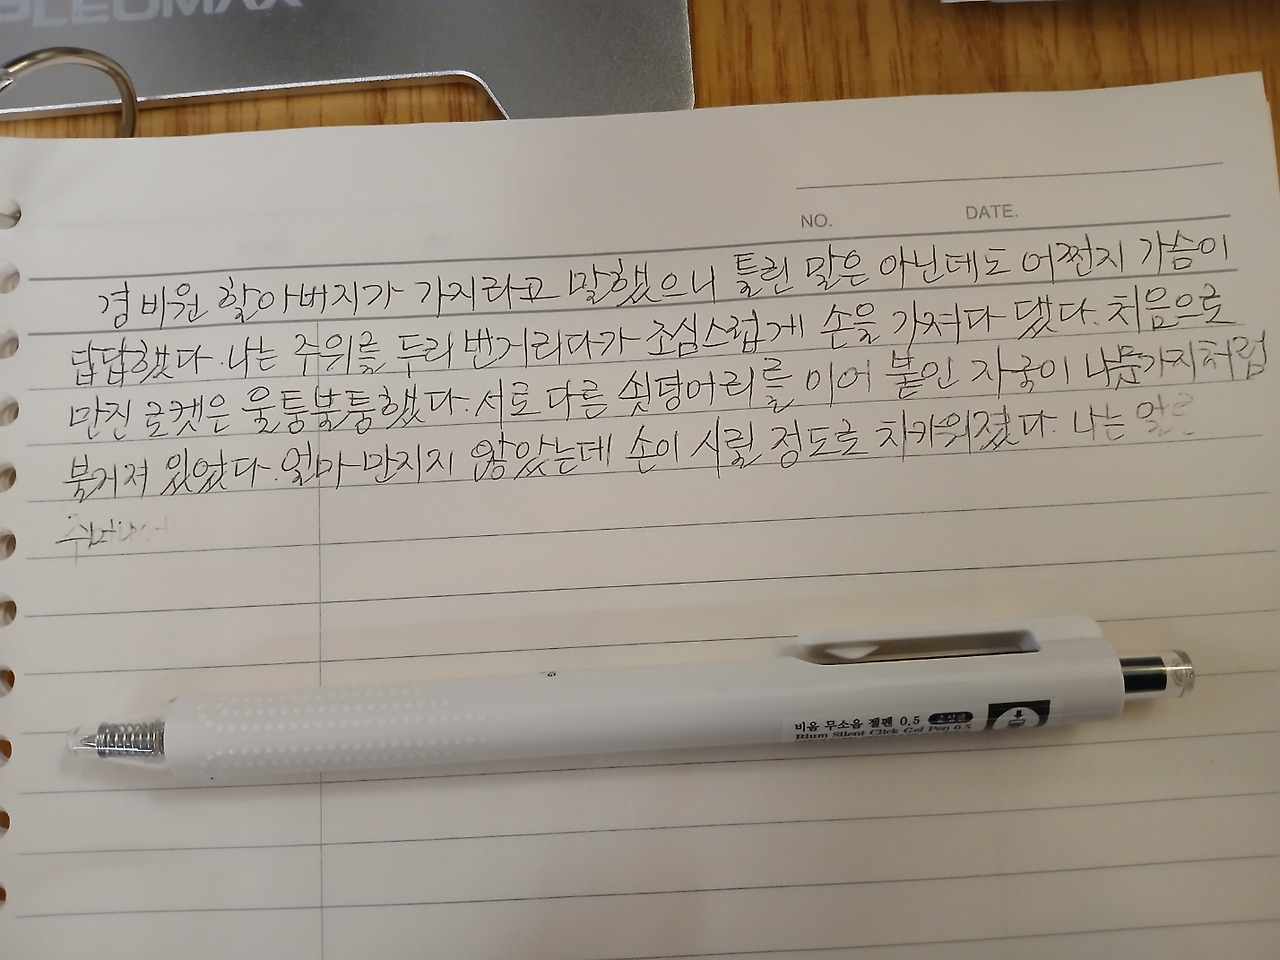 PLEOMAX
NO. DATE.
경비원 할아버지가 가지라고 말했으니 틀린 말은 아닌데도 어쩐지 가슴이
답답했다. 나는 주위를 두리번거리다가 조심스럽게 손을 가져다 댔다. 처음으로
만진 로켓은 울퉁불퉁했다. 서로 다른 쇳덩어리를 이어 붙인 자국이 나뭇가지처럼
불거져 있었다. 얼마 만지지 않았는데 손이 시릴 정도로 차가워졌다. 나는 얼른
비움 무소음 젤펜 0.5
Blum Silent Click Gel Pen 0.5